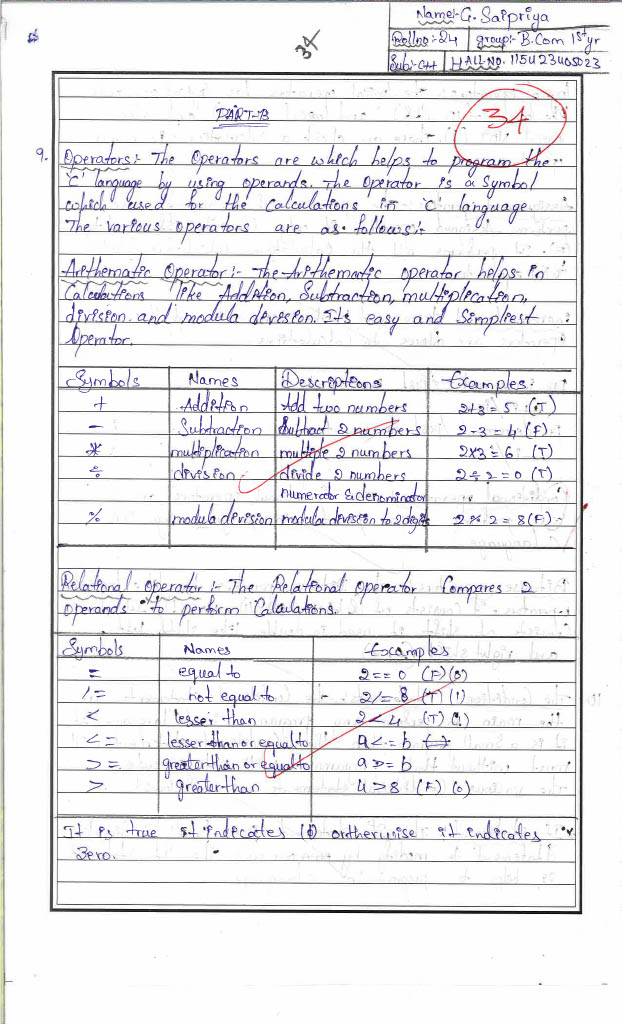 Name:- G. Saipriya
Rollno:-24 group:- B.Com 1st yr
Sub:- C++ HALL.NO. 115423405023
34
PART-B
34
9. Operators:- The Operators are which helps to program the
'C' language by using operands. The Operator is a Symbol
which used for the Calculations in 'C' language
The various operators are as follows:-
Arithematic Operator:- The Arithematic operator helps in
Calculations like Addition, Subtraction, multiplication,
division and modula devesion. Its easy and Simpliest
Operator.
Symbols Names Descriptions Examples:
+ Addition Add two numbers 2+3=5 (T)
- Subtraction Subtract 2 numbers 2-3=4 (F)
* multiplication multiple 2 numbers 2x3=6 (T)
÷ division divide 2 numbers 2÷2=0 (T)
numerator & denominator
% modula division modula division to 2 digits 2%2=8(F)
Relational operator:- The Relational operator Compares 2
operands to perform Calculations.
Symbols Names Examples
= equal to 2==0 (F)(0)
!= not equal to 2!=8 (T)(1)
< lesser than 2<4 (T)(1)
<= lesser than or equal to a<=b
>= greater than or equal to a>=b
> greater than 4>8 (F)(0)
It is true it indicates (1) ortherwise it indicates
Zero.